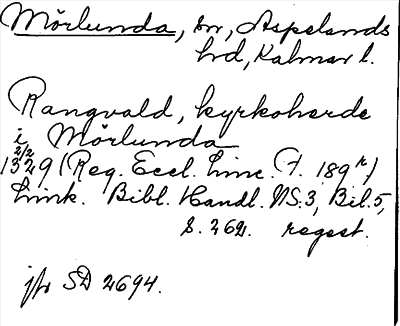 Mörlunda, sn, Aspelands
hd, Kalmar l.
Rangvald, kyrkoherde
i Mörlunda
2/2
1329 (Reg. Eccl. Linc. F. 189 r)
Link. Bibl. Handl. NS:3, Bil. 5,
S. 262. regest.
jfr SD 2694.